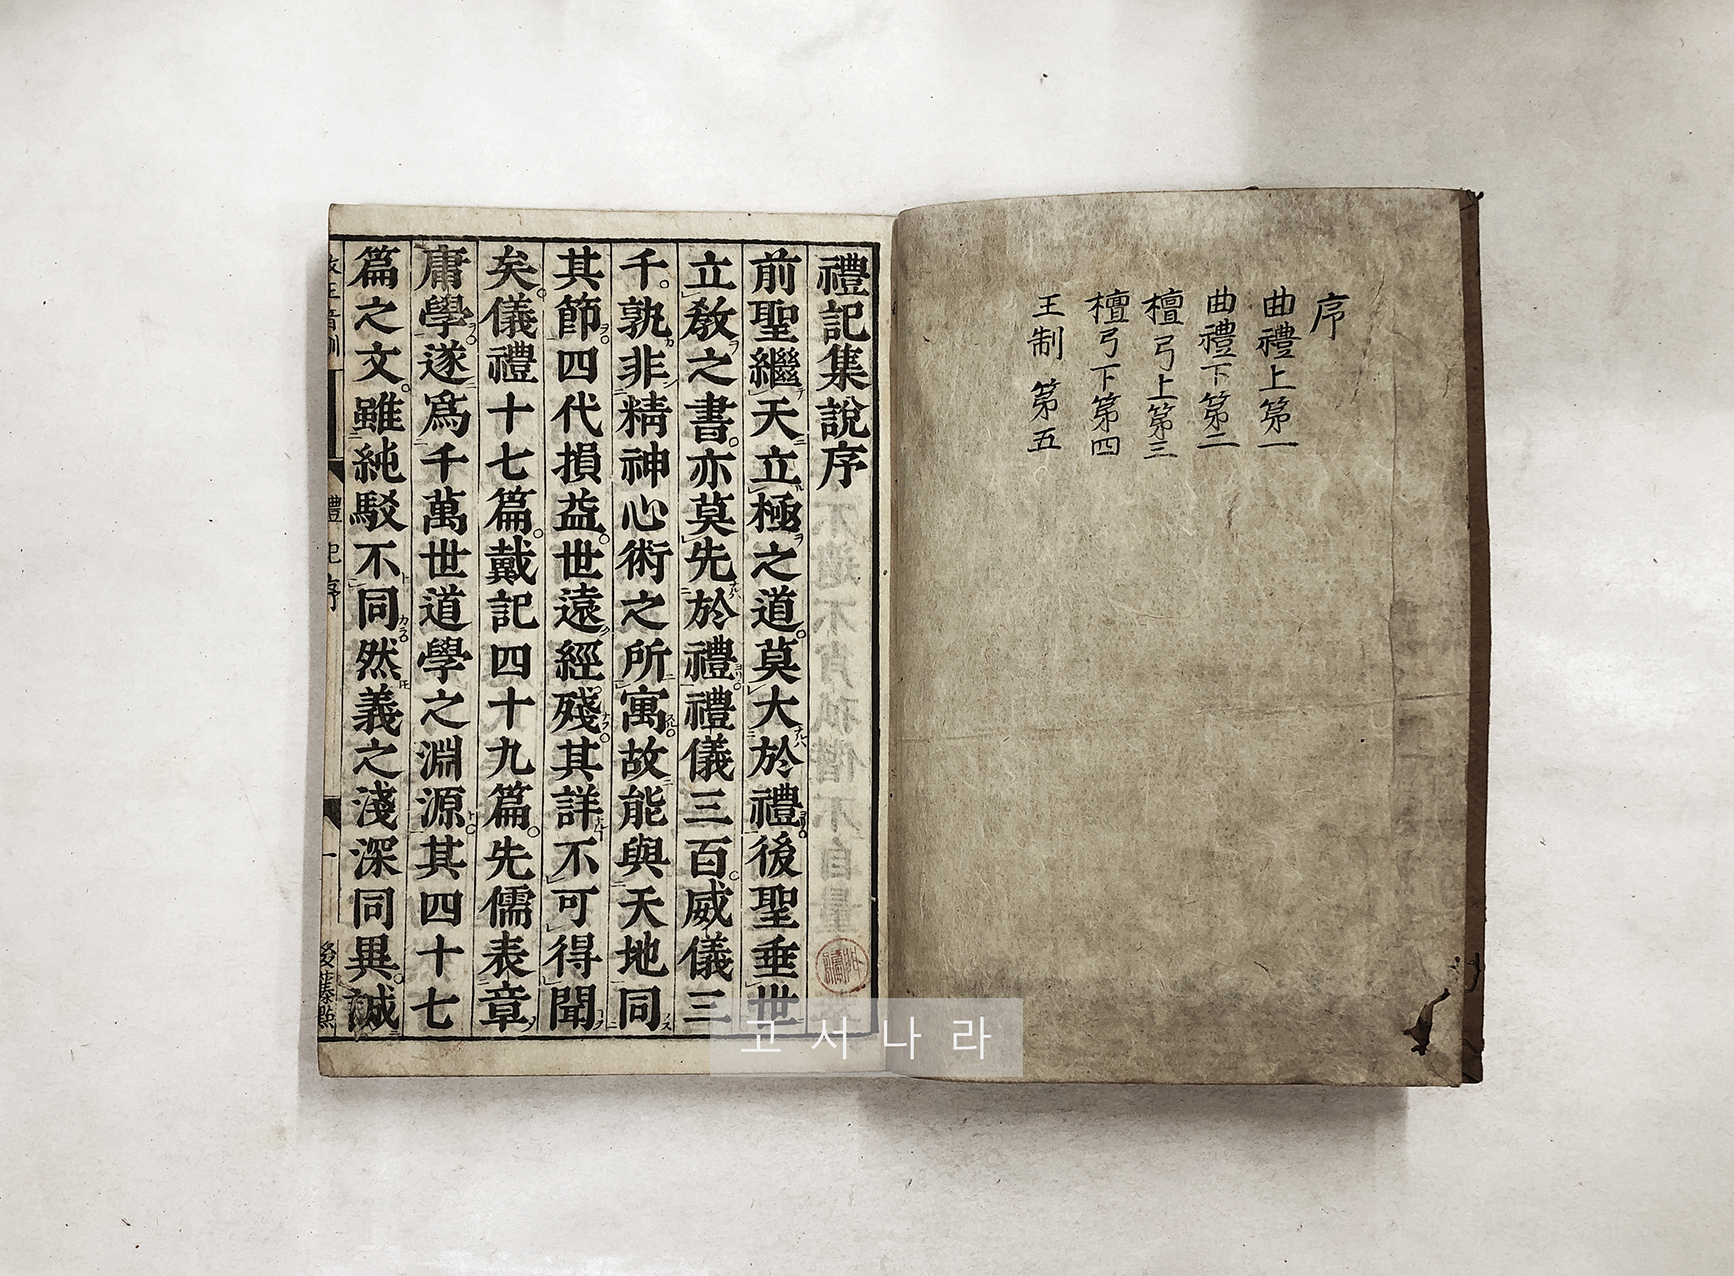 序
曲禮上第一
曲禮下第二
檀弓上第三
檀弓下第四
王制 第五
禮記集說序
前聖繼天立極之道莫大於禮後聖垂世
立敎之書亦莫先於禮禮儀三百威儀三
千孰非精神心術之所寓故能與天地同
其節四代損益世遠經殘其詳不可得聞
矣儀禮十七篇戴記四十九篇先儒表章
庸學遂爲千萬世道學之淵源其四十七
篇之文雖純駁不同然義之淺深同異誠
禮記序
一
後藤點
고서나라